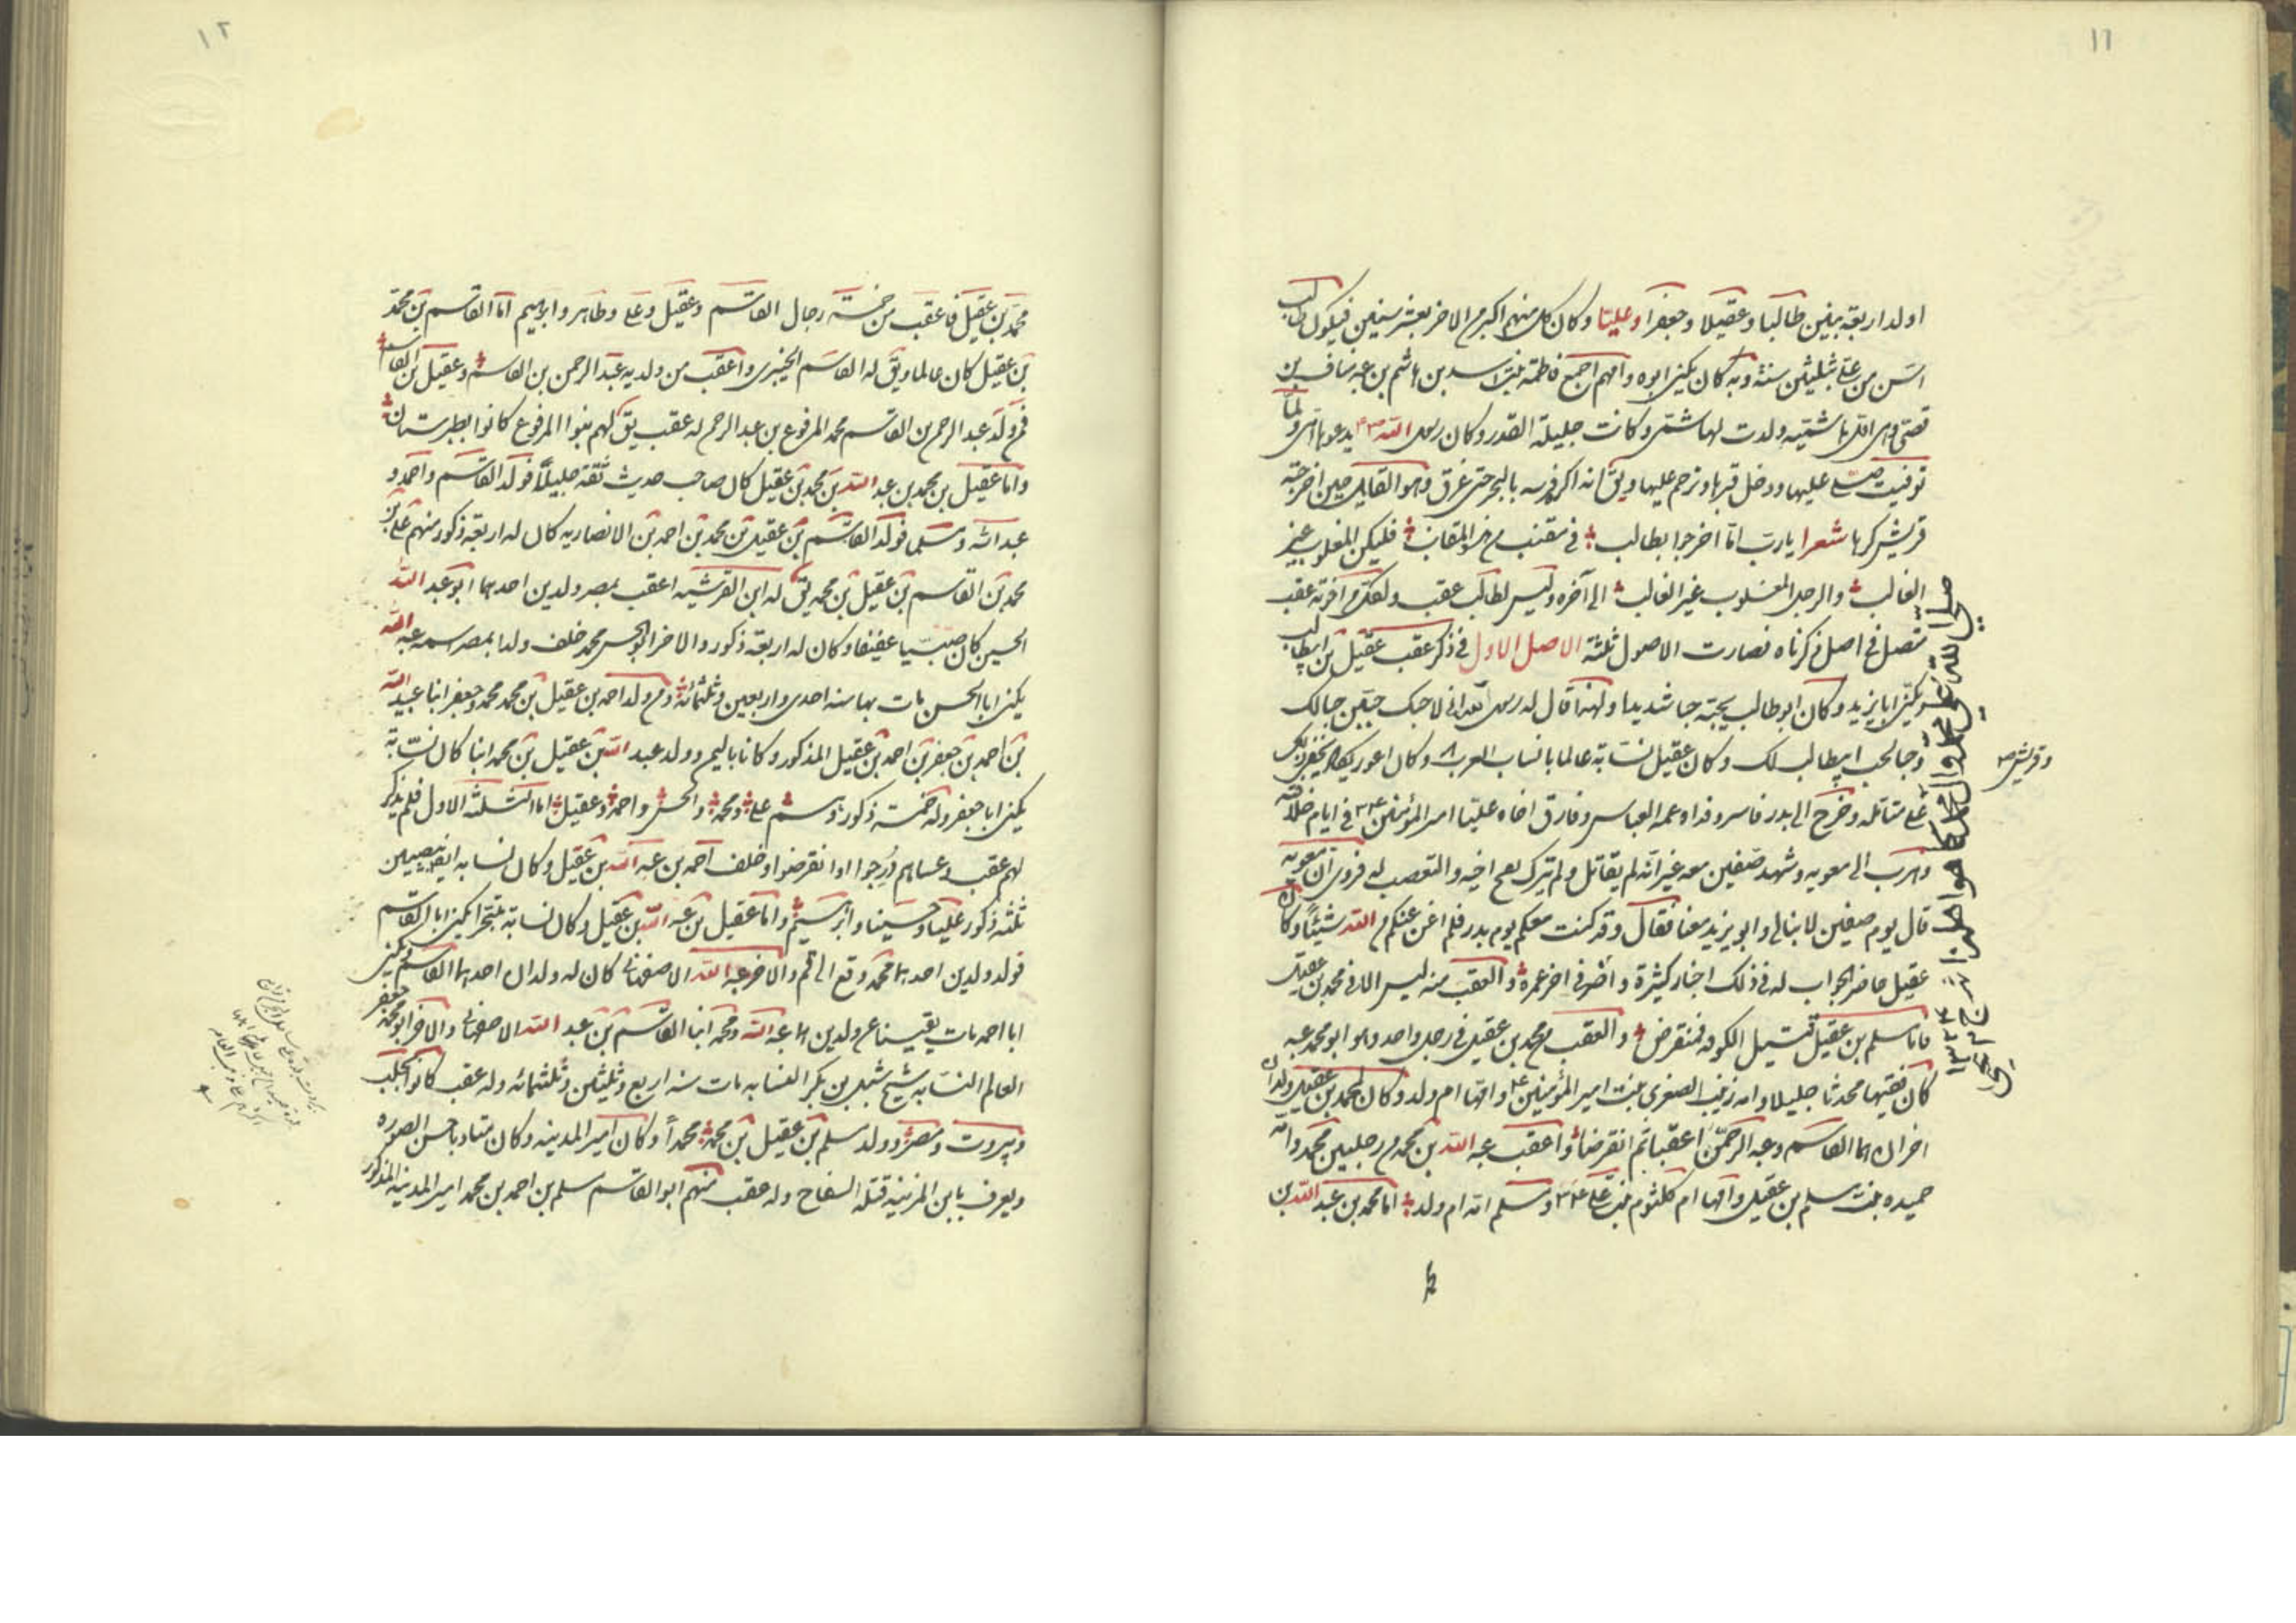 ١١
اولد اربعة بنين طالبا وعقيلا وجعفرا وعليا وكان كل منهم اكبر من الاخر بعشر سنين فيكون طالب
اسن من علي بثلثين سنة وبه كان يكنى ابوه وامهم اجمع فاطمة بنت اسد بن هاشم بن عبد مناف بن
قصي وهي اول هاشمية ولدت لهاشمي وكانت جليلة القدر وكان رسول الله يدعوها امي ولما
توفيت صلى عليها ودخل قبرها وترحم عليها ويق انه اكره فرسه بالبحر حتى غرق وهو القايل حين اخرجته
قريش كرها شعرا يا رب اما اخرجوا بطالب في مقنب من هذه المقانب فليكن المغلوب غير
الغالب والرجل المغلوب غير الغالب الى آخره وليس لطالب عقب ولكل من اخوته عقب
متصل في اصل ذكرناه فصارت الاصول ثلثة الاصل الاول في ذكر عقب عقيل بن ابيطالب
ويكنى ابا يزيد وكان ابو طالب يحبه حبا شديدا ولهذا قال له رسول الله اني لاحبك حبين حبا لك
وحبا لحب ابيطالب لك وكان عقيل نسابة عالما بانساب العرب وكان اعور
وقريش
على مقاتله وخرج الى بدر فاسر وفداه عمه العباس وفارق اخاه عليا امير المؤمنين في ايام خلافته
وهرب الى معويه وشهد صفين معه غير انه لم يقاتل ولم يترك نصح اخيه والتعصب له فروى ان معويه
قال يوم صفين لا نبالي وابو يزيد معنا فقال وقد كنت معكم يوم بدر فلم اغن عنكم من الله شيئا وكان
عقيل حاضر الجواب له في ذلك اخبار كثيرة واضر في اخر عمره والعقب منه ليس الا في محمد بن عقيل
فاما مسلم بن عقيل قتيل الكوفه فمنقرض والعقب من محمد بن عقيل في رجل واحد وهو ابو محمد عبد
كان فقيها محدثا جليلا وامه زينب الصغرى بنت امير المؤمنين وامها ام ولد وكان لمحمد بن عقيل ولدان
اخران هما القاسم وعبد الرحمن اعقبا ثم انقرضا واعقب عبد الله بن محمد من رجلين محمد وامه
حميده بنت مسلم بن عقيل وامها ام كلثوم بنت علي ومسلم امه ام ولد اما محمد بن عبد الله بن
١٢
محمد بن عقيل فاعقب من خمسة رجال القاسم وعقيل وعلي وطاهر وابراهيم اما القاسم بن محمد
بن عقيل كان عالما ويق له القاسم الخيبري واعقب من ولديه عبد الرحمن بن القاسم وعقيل بن القاسم
فمن ولد عبد الرحمن بن القاسم محمد المرفوع بن عبد الرحمن له عقب يق لهم بنوا المرفوع كانوا بطبرستان
واما عقيل بن محمد بن عبد الله بن محمد بن عقيل كان صاحب حديث ثقة جليلا فولد القاسم واحمد و
عبد الله ومسلما فولد القاسم بن عقيل بن محمد بن احمد بن الانصاريه كان له اربعة ذكور منهم علي بن
محمد بن القاسم بن عقيل بن محمد يق له ابن القرشيه اعقب بمصر ولدين احدهما ابو عبد الله
الحسين كان صبيبا عفيفا وكان له اربعة ذكور والاخر ابو الحسن محمد خلف ولدا بمصر اسمه عبد الله
يكنى ابا الحسن مات بها سنه احدى واربعين وثلثمائة ومن ولد احمد بن عقيل بن محمد محمد وجعفر ابنا عبيد الله
بن احمد بن جعفر بن احمد بن عقيل المذكور وكانا باليمن وولد عبد الله بن عقيل بن محمد ابنا كان نسابة
يكنى ابا جعفر وله خمسة ذكور وهم علي ومحمد والحسن واحمد وعقيل اما الثلثة الاول فلم يذكر
لهم عقب وعساهم درجوا او انقرضوا وخلف احمد بن عبد الله بن عقيل وكان نسابه ايضا بنصيبين
ثلثه ذكور عليا وحسينا وابراهيم واما عقيل بن عبد الله بن عقيل وكان نسابة يكنى ابا القاسم
فولد ولدين احدهما محمد وقع الى قم والاخر عبد الله الاصفهاني كان له ولدان احدهما القاسم يكنى
ابا احمد مات يقينا عن ولدين هما عبد الله ومحمد ابنا القاسم بن عبد الله الاصفهاني والاخر ابو محمد جعفر
العالم النسابه شيخ شبل بن بكر النسابه مات سنه اربع وثلثين وثلثمائه وله عقب كانوا بحلب
وبيروت ومصر وولد مسلم بن عقيل بن محمد محمدا وكان امير المدينه وكان متاد با حسن الصوره
ويعرف بابن المزينه قتله السفاح وله عقب منهم ابو القاسم مسلم بن احمد بن محمد امير المدينه المذكور